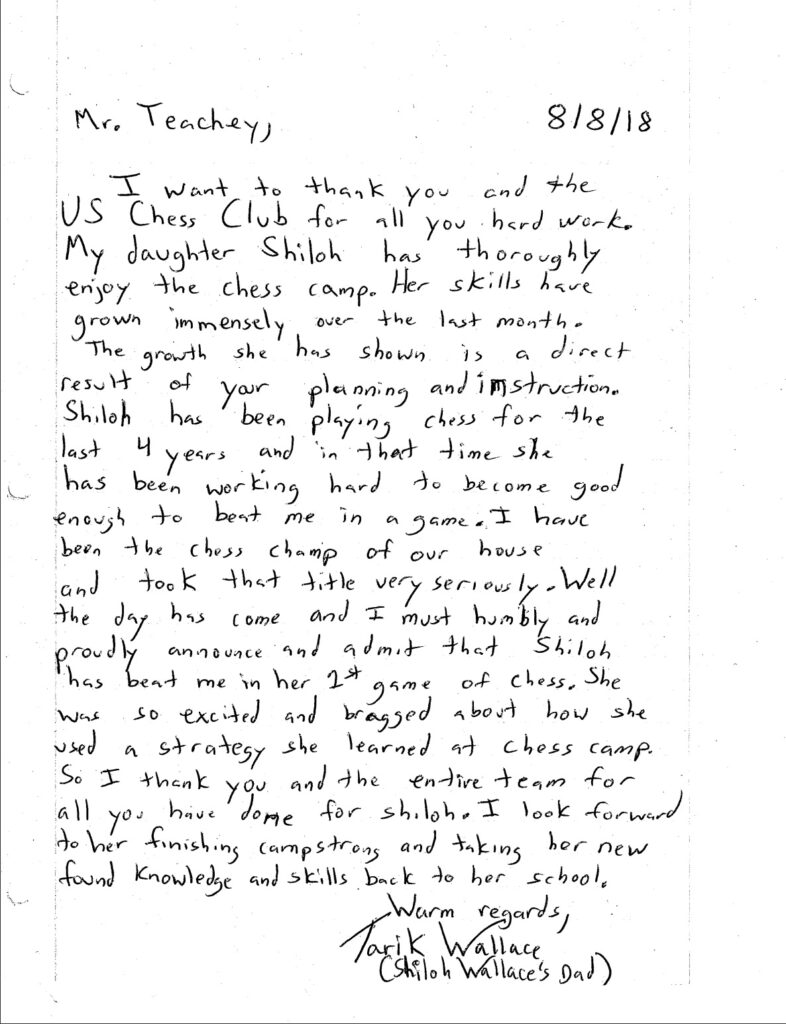 Mr. Teachey, 8/8/18
I want to thank you and the
US Chess Club for all you hard work.
My daughter Shiloh has thoroughly
enjoy the chess camp. Her skills have
grown immensely over the last month.
The growth she has shown is a direct
result of your planning and instruction.
Shiloh has been playing chess for the
last 4 years and in that time she
has been working hard to become good
enough to beat me in a game. I have
been the chess champ of our house
and took that title very seriously. Well
the day has come and I must humbly and
proudly announce and admit that Shiloh
has beat me in her 1st game of chess. She
was so excited and bragged about how she
used a strategy she learned at chess camp.
So I thank you and the entire team for
all you have done for shiloh. I look forward
to her finishing camp strong and taking her new
found knowledge and skills back to her school.
Warm regards,
Tarik Wallace
(Shiloh Wallace's Dad)